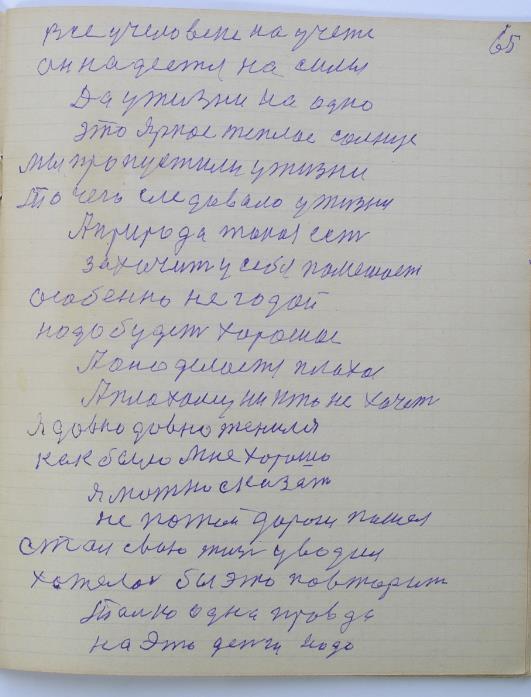 65
все у человека на учете
он надеется на силы
Да у жизни на одно
это яркое теплое солнце
мы пропустили у жизни
То чего следовало у жизни
А природа такая ест
захочит у себя помешает
особенно не годой
надо будет хорошое
А оно делается плахое
А плахому ни кто не хочет
Я довно довно женился
как было мне хорошо
я можно сказат
не по той дороги пашел
стал свою жизн уводил
хотелос бы это повторит
Толко одна правда
на это денги надо